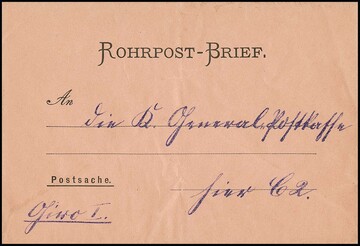 ROHRPOST-BRIEF.
An
die K. General-Postkasse
Postsache.
hier C2.
Giro I.